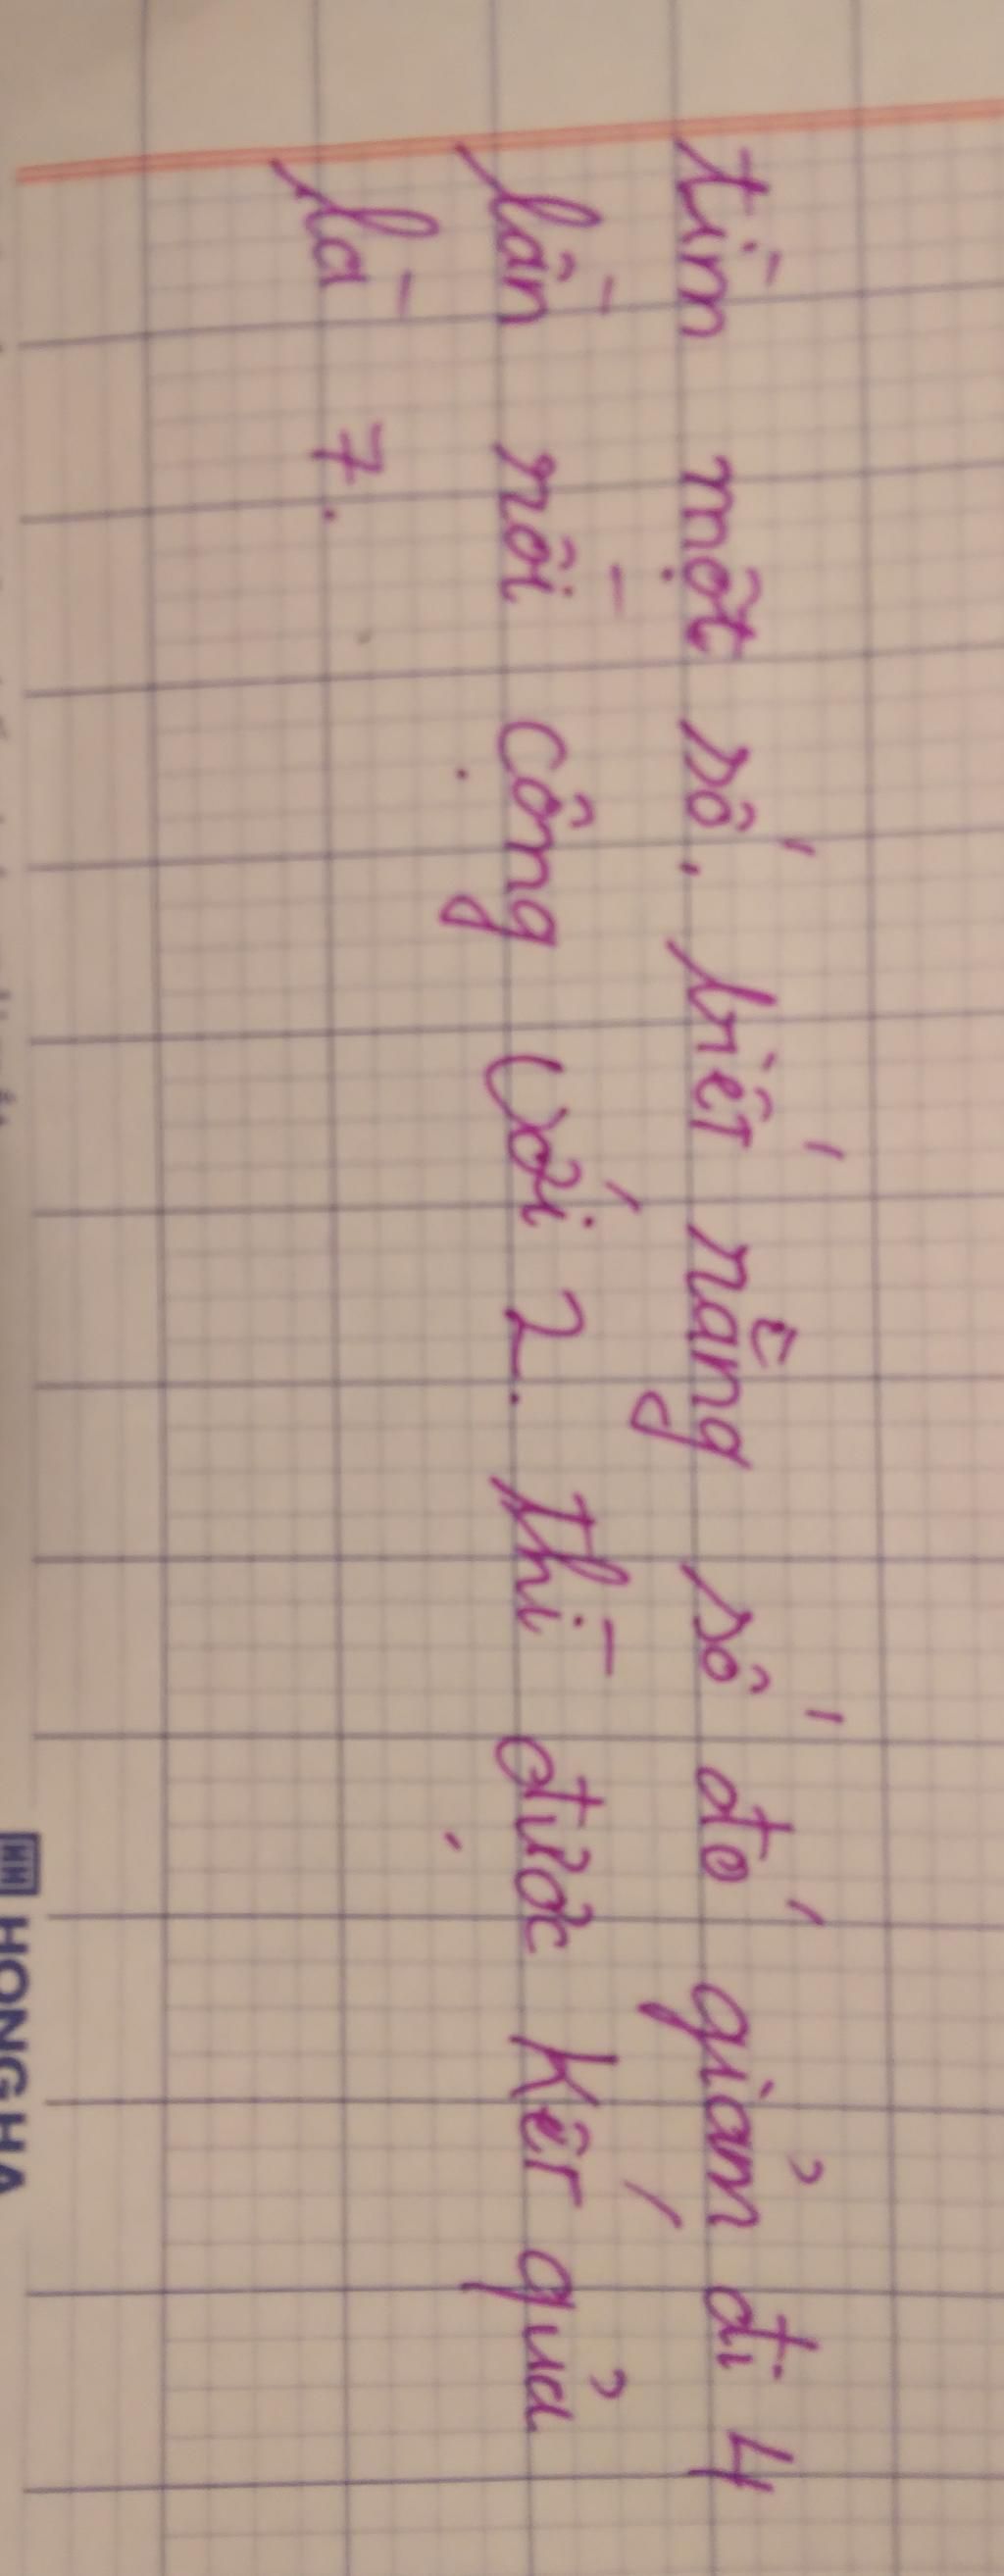 tìm một số, biết rằng số đó giảm đi 4
lần rồi cộng với 2. thì được kết quả
là 7.
HONG HA